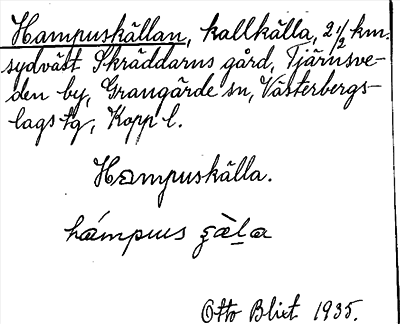 Hampuskällan, kallkälla, 2 1/2 km.
sydväst Skräddarns gård, Tjärnsve-
den by, Grangärde sn, Västerbergs-
lags tg, Kopp l.
Hampuskälla.
Otto Blixt 1935.